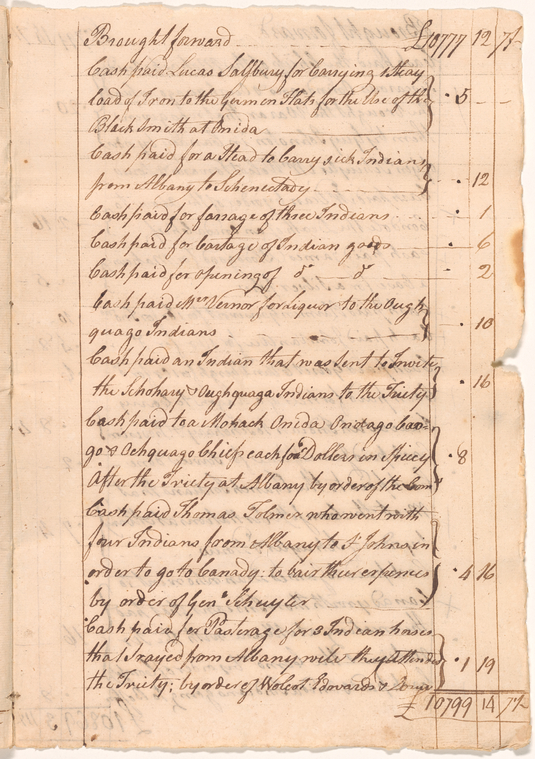 Brought forward £10777 12 7½
Cash paid Lucas Salsbury for Carrying 1 Sleay
load of Iron to the German Flats for the Use of the
Black Smith at Onida 5 — —
Cash paid for a Slead to Carry sick Indians
from Albany to Schenectady 12
Cash paid for farrage of three Indians 1
Cash paid for Cartage of Indian goods 6
Cash paid for opening of do do 2
Cash paid Mrs Vernor for Liquor to the Ough
quago Indians 10
Cash paid an Indian that was sent to Invite
the Schohary & Oughquaga Indians to the Triety 16
Cash paid to a Mohack Onida Onotago
go & Ochquago Chief each four Dollers in Spicey
After the Triety at Albany by order of the Coms 8
Cash paid Thomas Tolmer who went with
four Indians from Albany to St Johns in
order to go to Canady: to bair their expences
by order of Genl Schuyler 4 16
Cash paid for Pasterage for 3 Indian horses
that strayed from Albany wile they Attended
the Triety; by order of Wolcot Edowards & 1 19
£ 10799 14 7½